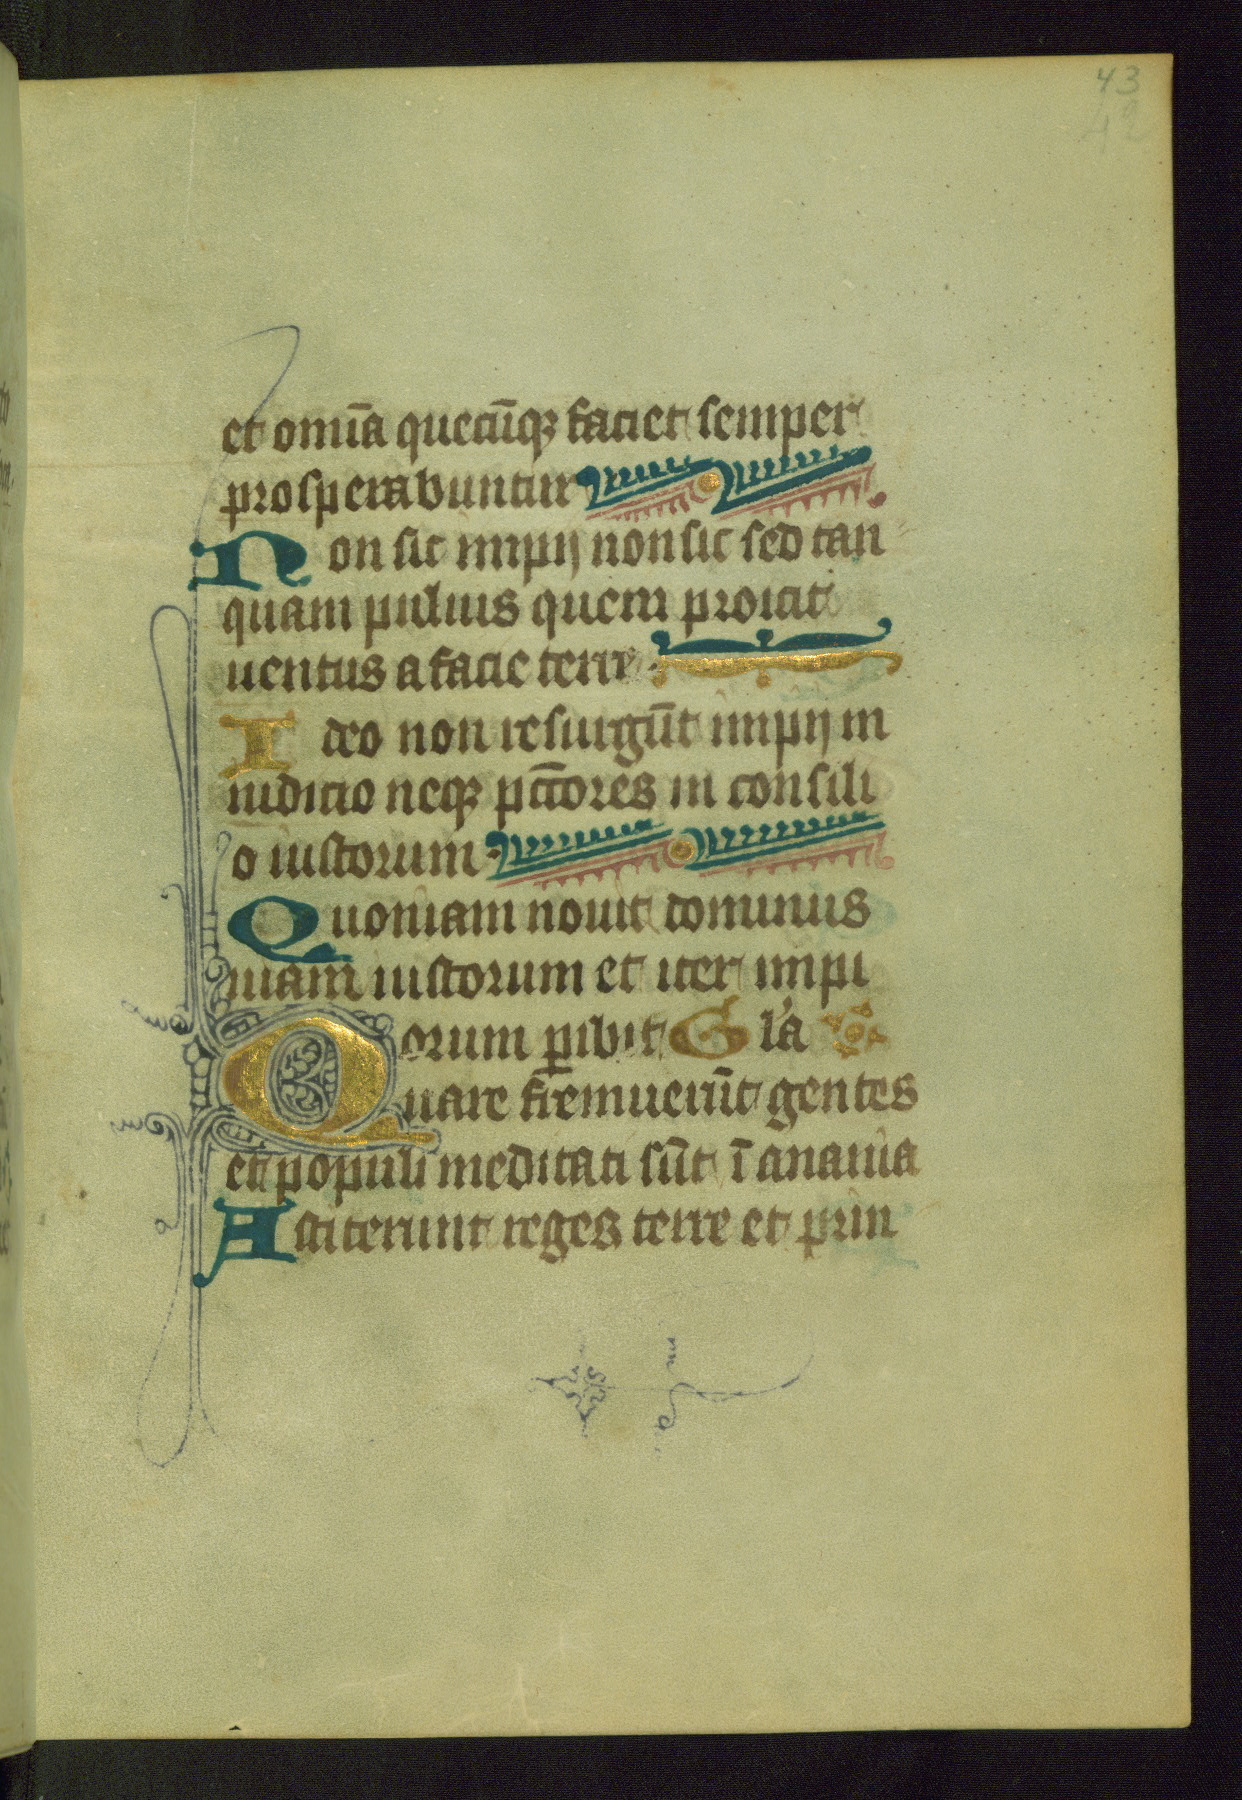 43
42
et omīa quecūqꝫ faciet semper
prosperabuntur
Non sic impij non sic sed tan
quam puluis quem proicit
uentus a facie terre
Ideo non resurgūt impij in
iudicio neqꝫ pcc̄ores in consili
o iustorum
Quoniam nouit dominus
uiam iustorum et iter impi
orum ꝑibit Gl'a
Quare fremuerūt gentes
et populi meditati sūt ī anania
Astiterunt reges terre et prin